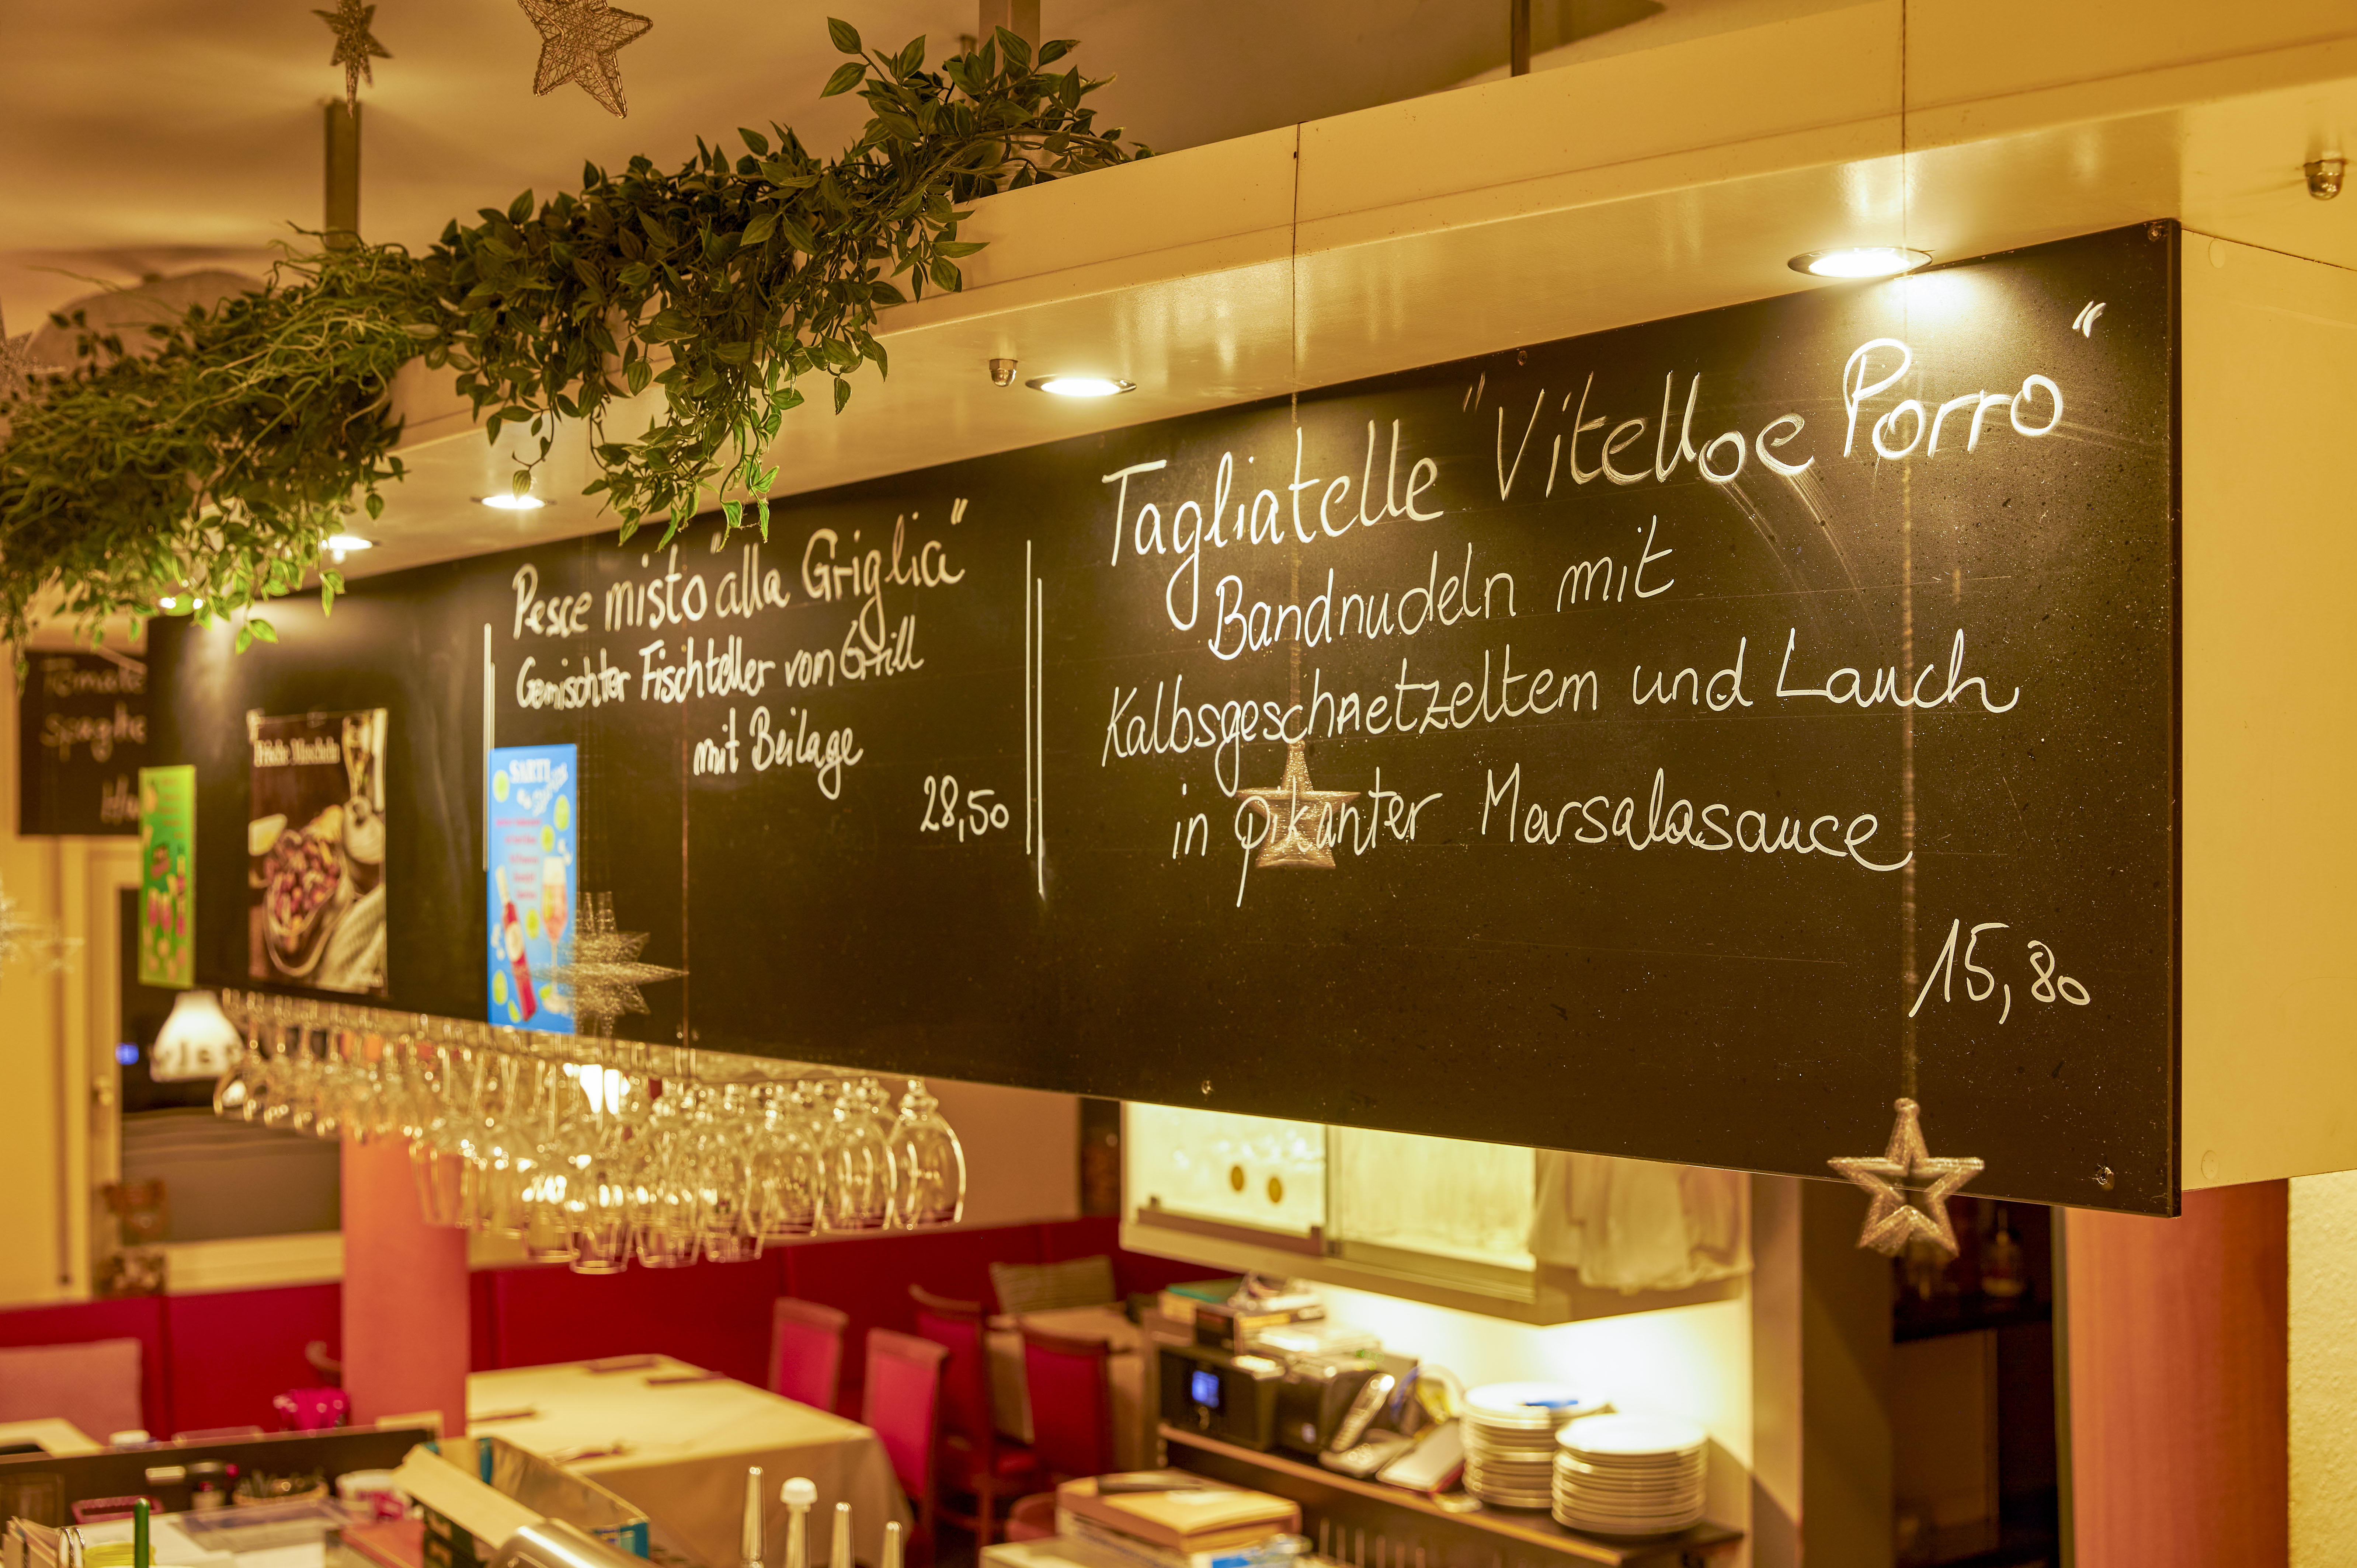 Pesce misto "alla Griglia"
Gemischter Fischteller vom Grill
mit Beilage
28,50
Tagliatelle "Vitello e Porro"
Bandnudeln mit
Kalbsgeschnetzeltem und Lauch
in pikanter Marsalasauce
15,80
SARTI